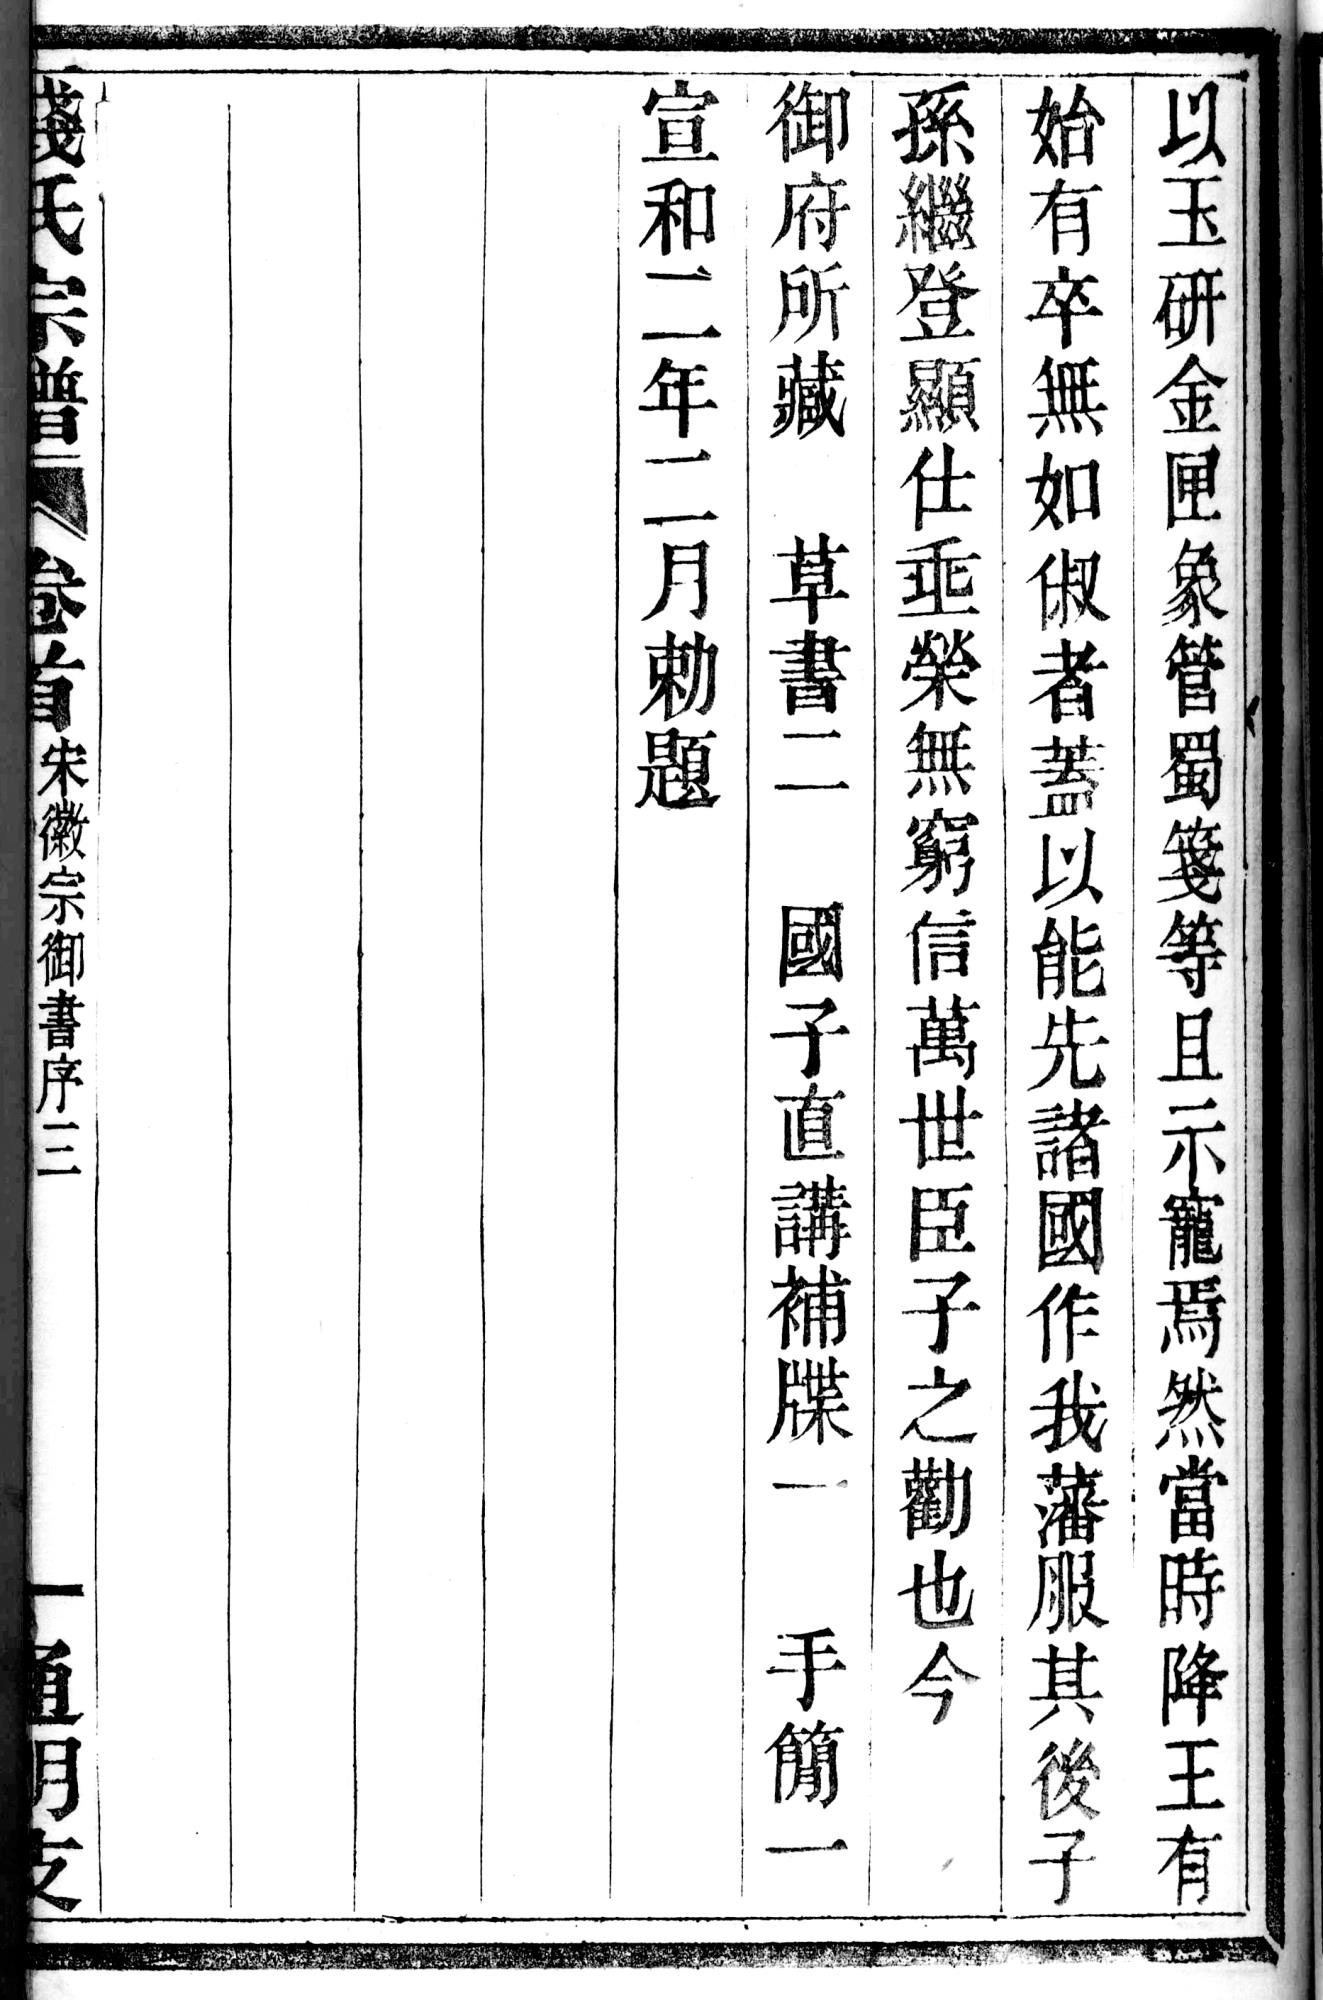 以玉研金匣象管蜀箋等且示寵焉然當時降王有
始有卒無如俶者蓋以能先諸國作我藩服其後子
孫繼登顯仕乖榮無窮信萬世臣子之勸也今
御府所藏　草書二　國子直講補牒一　手簡一
宣和二年二月勅題
錢氏宗譜　卷首　宋徽宗御書序三　一　通明支